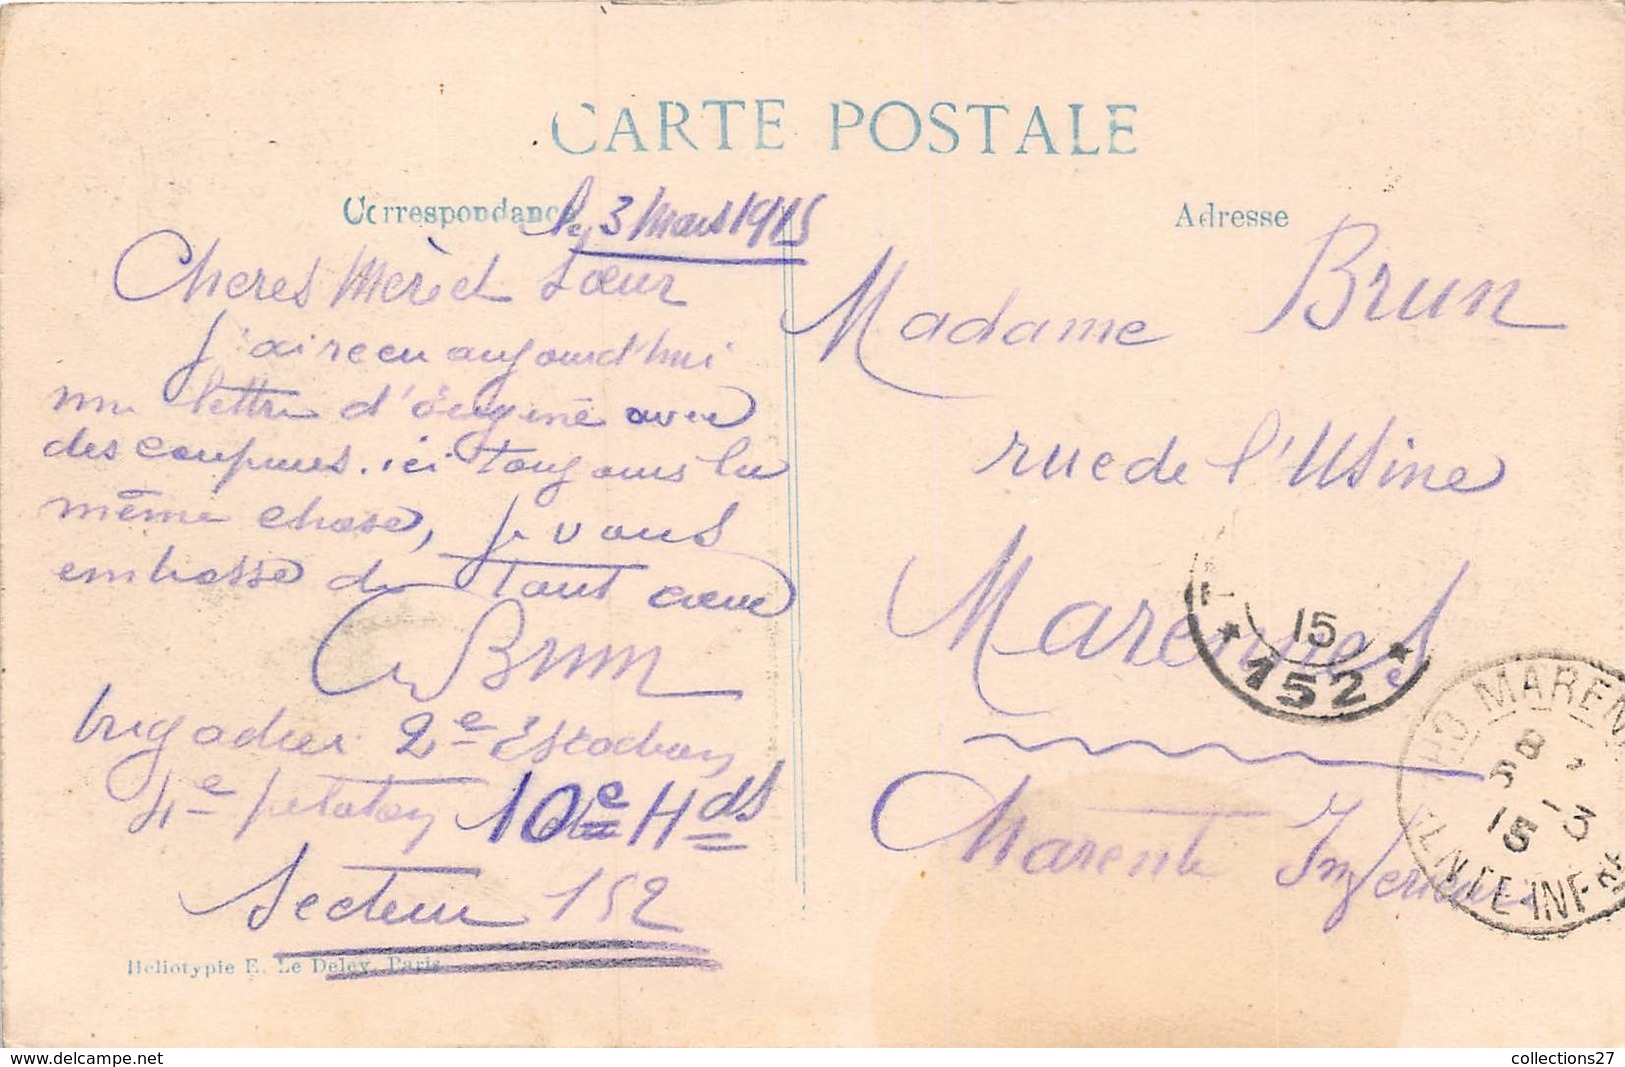 CARTE POSTALE
Correspondance
Adresse
le 3 Mars 1915
Cheres Mère et Sœur
j'ai recu aujourd'hui
une lettre d'Eugene avec
des coupures. ici toujours la
même chose, je vous
embrasse de tout cœur
Brun
brigadier 2e Escadron
4e peloton 10e Hds
Secteur 152
Heliotypie E. Le Deley, Paris
Madame Brun
rue de l'Usine
Marennes
Charente Inferieure
15
152
MARENN
8
5 -3
15
INF-RE
delcampe.net
collections27